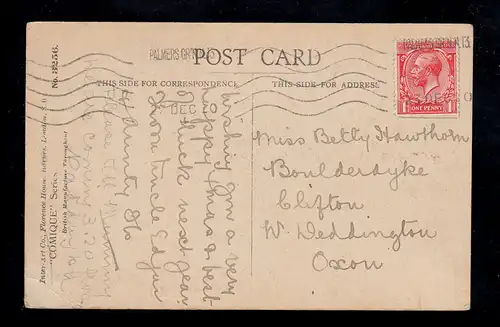 PALMERS GREEN
POST CARD
PALMERS GREEN. N.13.
THIS SIDE FOR CORRESPONDENCE
THIS SIDE FOR ADDRESS
DEC
ONE PENNY
Wishing you a very
happy Xmas & best
luck next year
from Uncle Edgar
& Aunty Flo
Miss Betty Hawthorn
Boulderdyke
Clifton
Nr Deddington
Oxon
Inter-Art Co., Florence House, Barnes, London, S.W.
"COMIQUE" Series
British Manufacture Throughout
No. 3256.